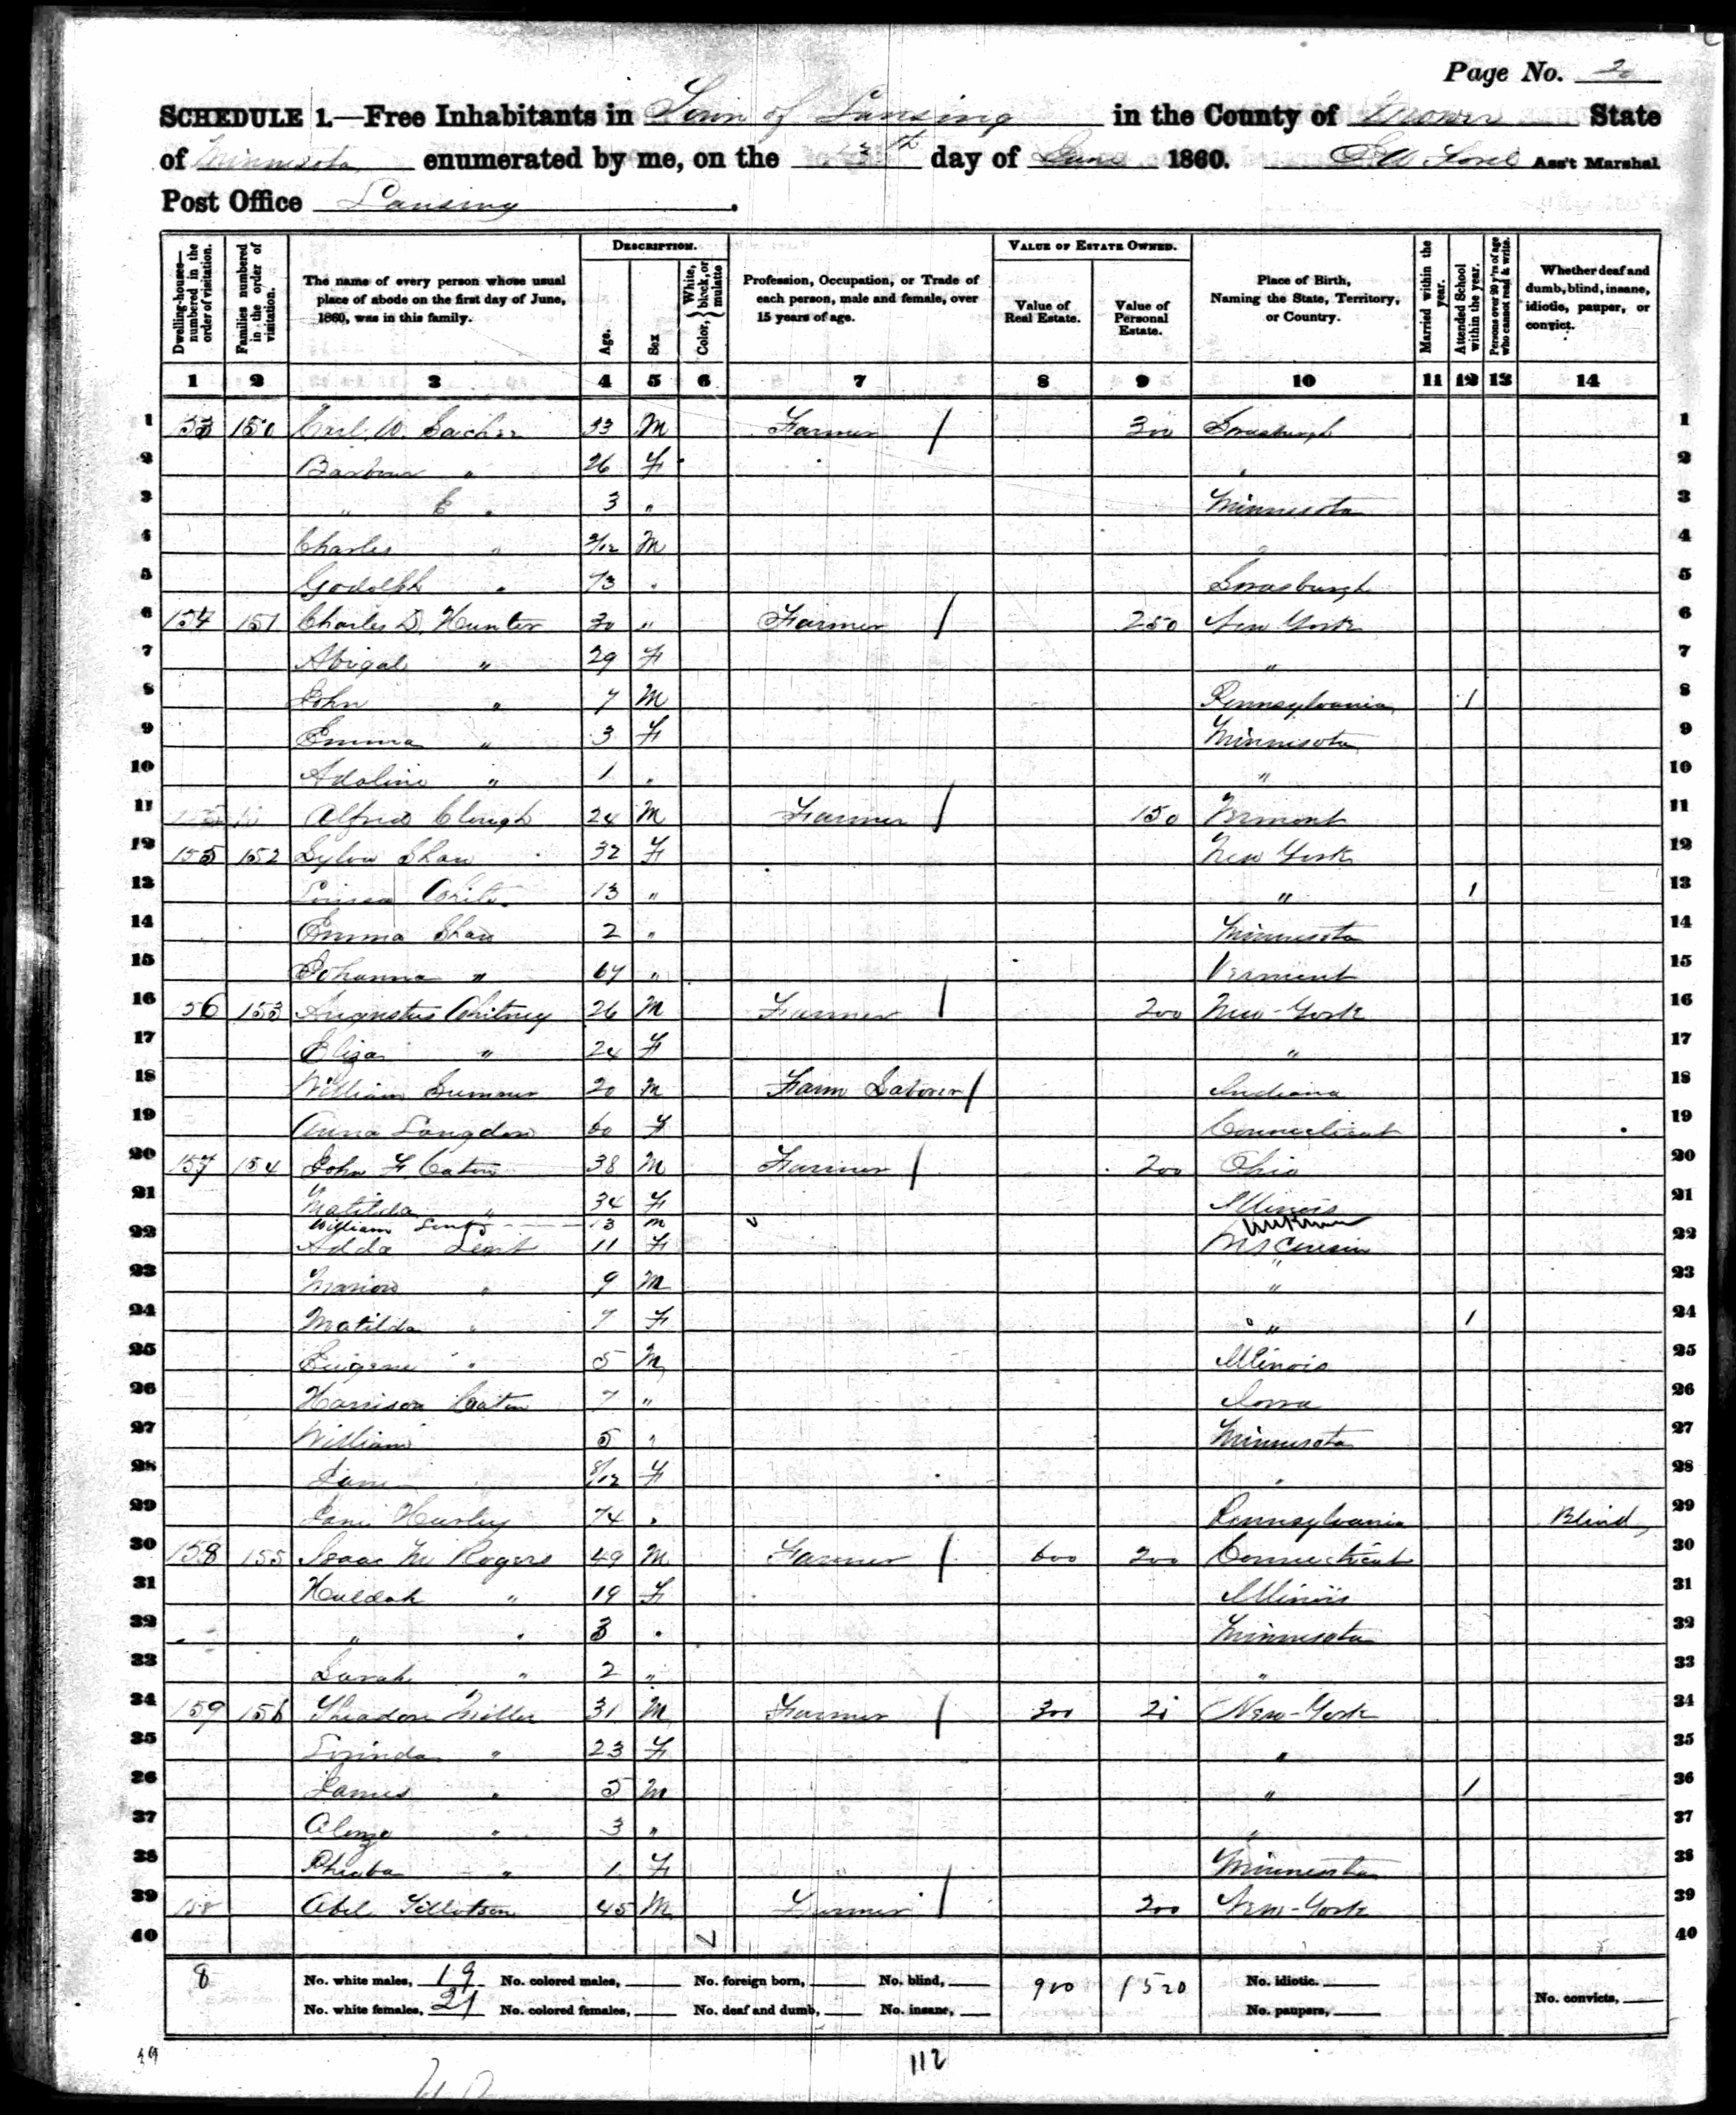 Page No. 2
SCHEDULE 1.—Free Inhabitants in Town of Lansing in the County of Mower State
of Minnesota enumerated by me, on the 13th day of June 1860. Ass't Marshal
Post Office Lansing.
Dwelling-houses—numbered in the order of visitation. Families numbered in the order of visitation. The name of every person whose usual place of abode on the first day of June, 1860, was in this family. DESCRIPTION. Age. Sex Color, {White, black, or mulatto Profession, Occupation, or Trade of each person, male and female, over 15 years of age. VALUE OF ESTATE OWNED. Value of Real Estate. Value of Personal Estate. Place of Birth, Naming the State, Territory, or Country. Married within the year. Attended School within the year. Persons over 20 y'rs of age who cannot read & write. Whether deaf and dumb, blind, insane, idiotic, pauper, or convict.
1 2 3 4 5 6 7 8 9 10 11 12 13 14
1 150 Carl W. 33 M Farmer / 300 1
2 " 26 F 2
3 " " 3 " Minnesota 3
4 Charles " M " 4
5 Godolph " 73 " 5
6 154 151 Charles D. Hunter 30 " Farmer / 250 New York 6
7 Abigal " 29 F " 7
8 John " 7 M Pennsylvania 1 8
9 Emma " 3 F Minnesota 9
10 Adaline " 1 " " 10
11 Alfred Clough 24 M Farmer / 150 Vermont 11
12 155 152 Sylva Shaw 32 F New York 12
13 Louisa 13 " " 1 13
14 Emma Shaw 2 " Minnesota 14
15 Johanna " 67 " Vermont 15
16 56 153 Augustus Whitney 26 M Farmer / 200 New-York 16
17 Eliza " 24 F " 17
18 William Sumner 20 M Farm Laborer / Indiana 18
19 Anna Langdon 60 F Connecticut 19
20 157 154 John F. Caton 38 M Farmer / 200 Ohio 20
21 Matilda " 34 F Illinois 21
William Lent 13 M Unknown
22 Adda Lent 11 F Wisconsin 22
23 Marion " 9 M " 23
24 Matilda " 7 F " 1 24
25 Eugene " 5 M Illinois 25
26 Harrison Caton 7 " Iowa 26
27 William 5 " Minnesota 27
28 Jane 8/12 F " 28
29 Jane Hurley 74 " Pennsylvania Blind 29
30 158 155 Isaac M Rogers 49 M Farmer / 600 200 Connecticut 30
31 Huldah " 19 F Illinois 31
32 " " 3 " Minnesota 32
33 Sarah " 2 " " 33
34 159 156 Theadore Miller 31 M Farmer / 300 20 New-York 34
35 Lorinda " 23 F " 35
36 James " 5 M " 1 36
37 Alonzo " 3 " " 37
38 Pheaba " 1 F Minnesota 38
39 158 Abel Tillotson 45 M Farmer / 200 New-York 39
40 40
8 No. white males, 19 No. colored males, No. foreign born, No. blind, 900 1520 No. idiotic.
No. white females, 21 No. colored females, No. deaf and dumb, No. insane, No. paupers, No. convicts,
112